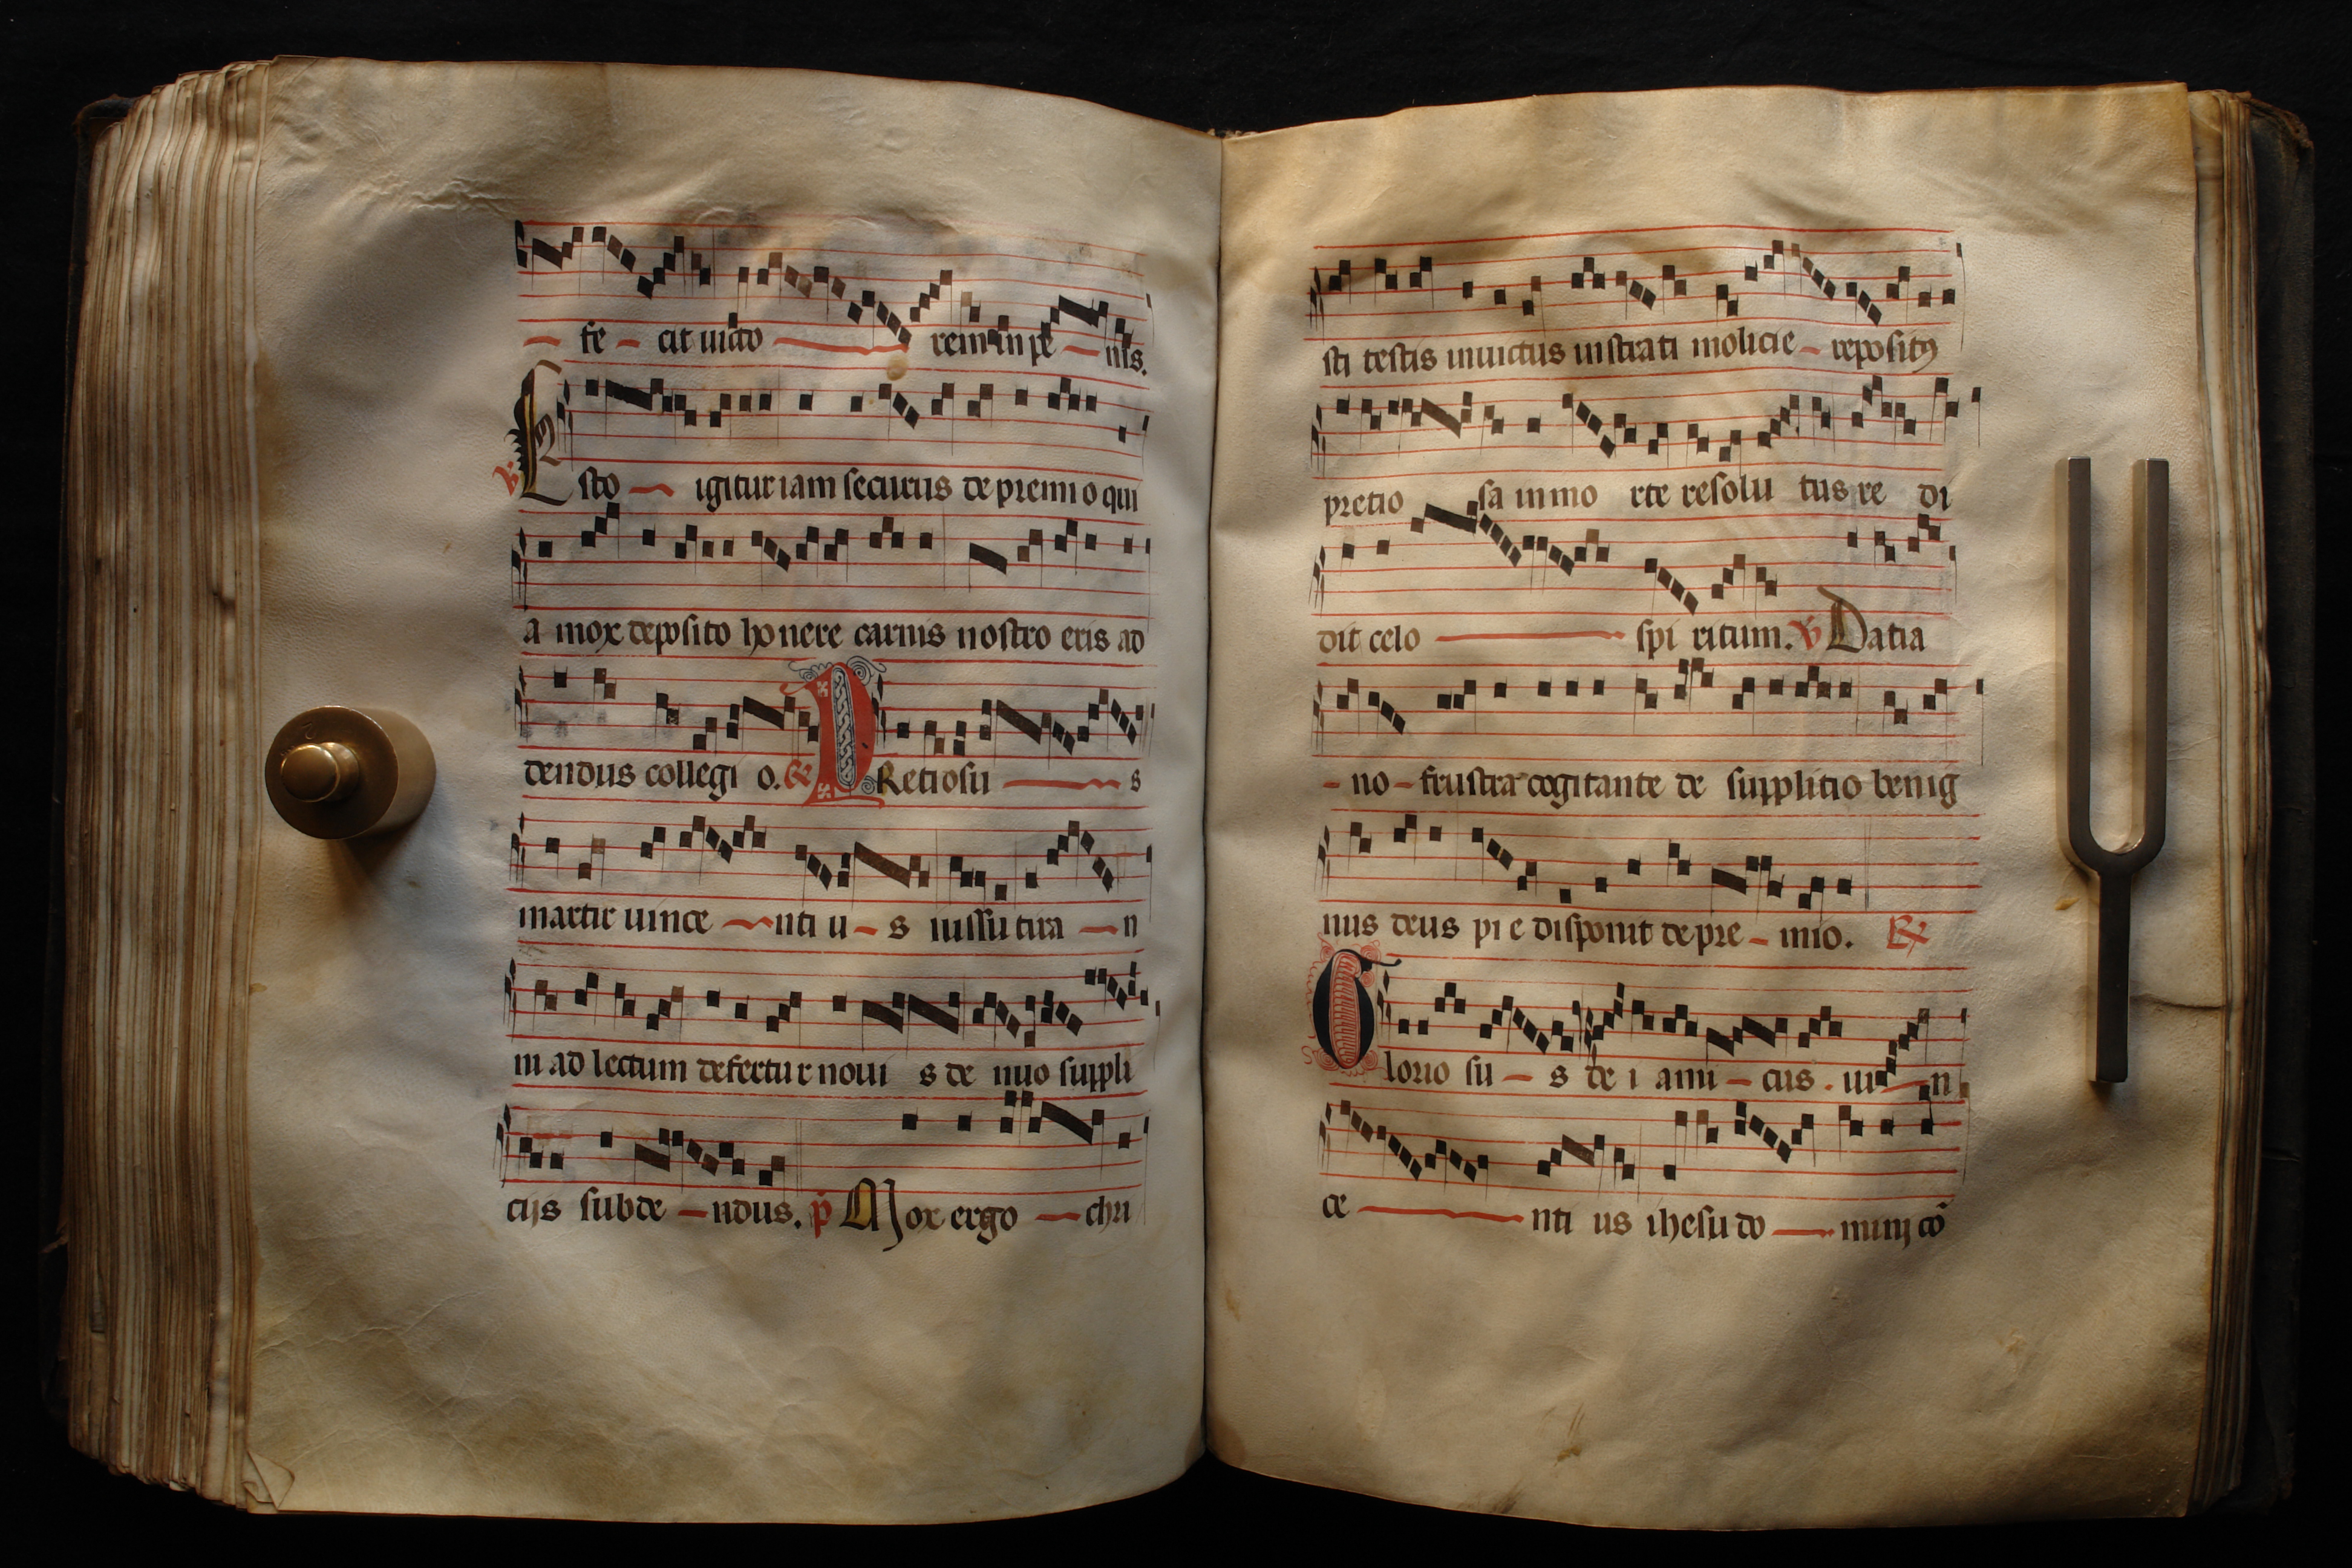 fe cit uicto rem in pe nis.
℣ Esto igitur iam securus de premio qui
a mox deposito honere carnis nostro eris ad
dendus collegi o. ℟ PRetiosu s
martir uince nti u s iussu tira n
ni ad lectum defertur noui s de nuo suppli
cijs subde ndus. p Mox ergo chri
sti testis inuictus instrati molicie repositꝰ
pretio sa in mo rte resolu tus re di
dit celo spi ritum. ℣ Datia
no frustra cogitante de supplitio benig
nus deus pi e disponit de pre mio. ℟
Glorio su s de i ami cus . ui n
ce nti us ihesu do minj cō